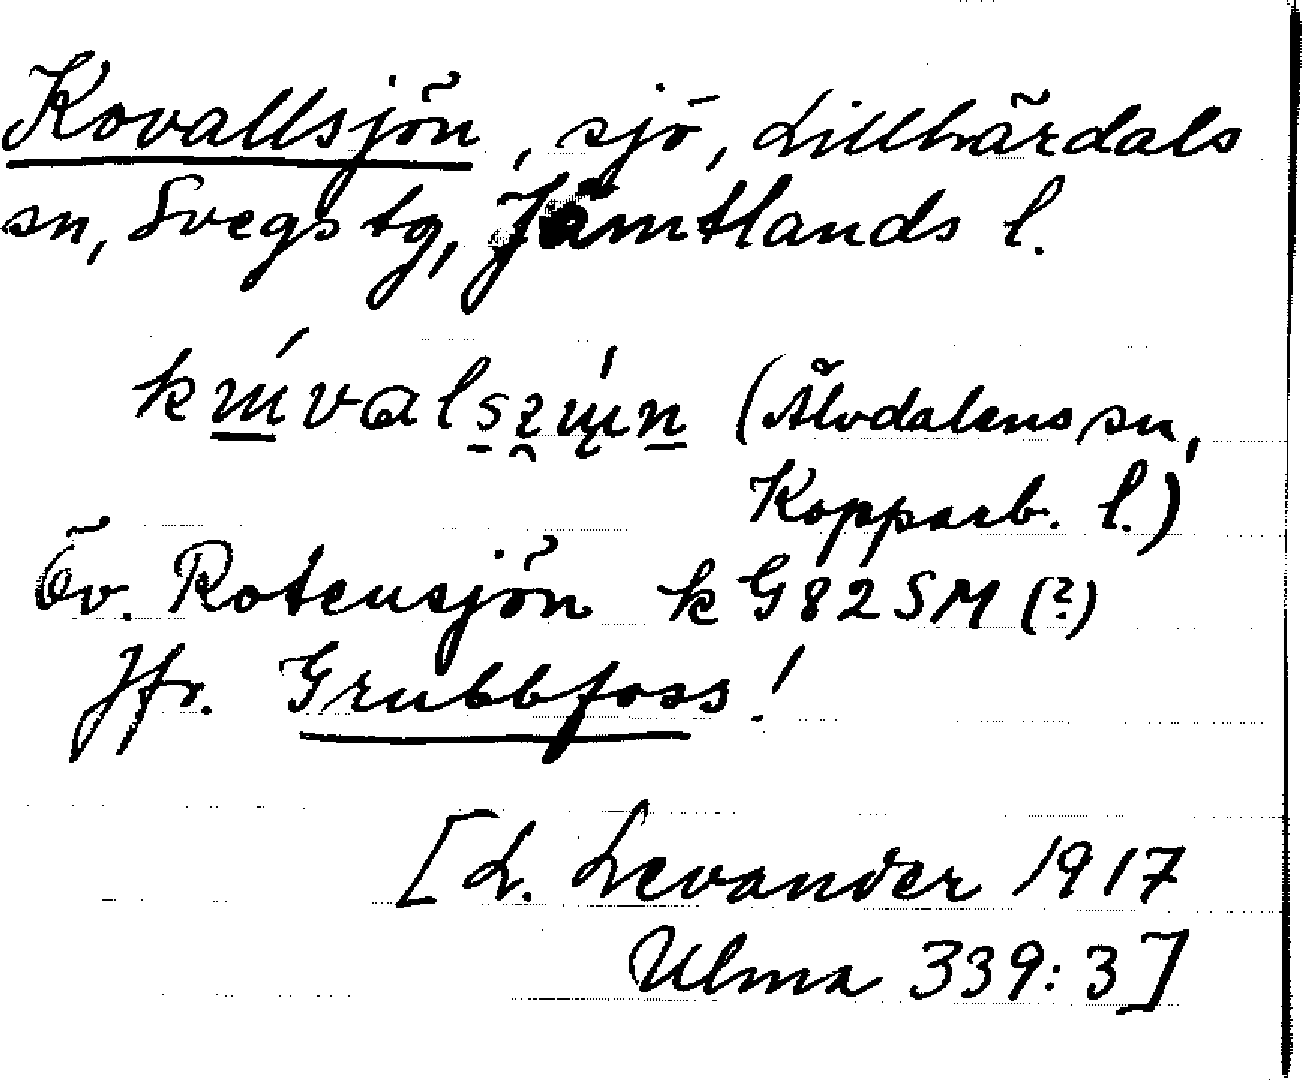 Kovallsjön, sjö, Lillhärdals
sn, Svegs tg, Jämtlands l.
(Älvdalens sn,
Kopparb. l.)
Öv. Rotensjön k G82SM (?)
Jfr. Grubbfoss!
[L. Levander 1917
Ulma 339:3]